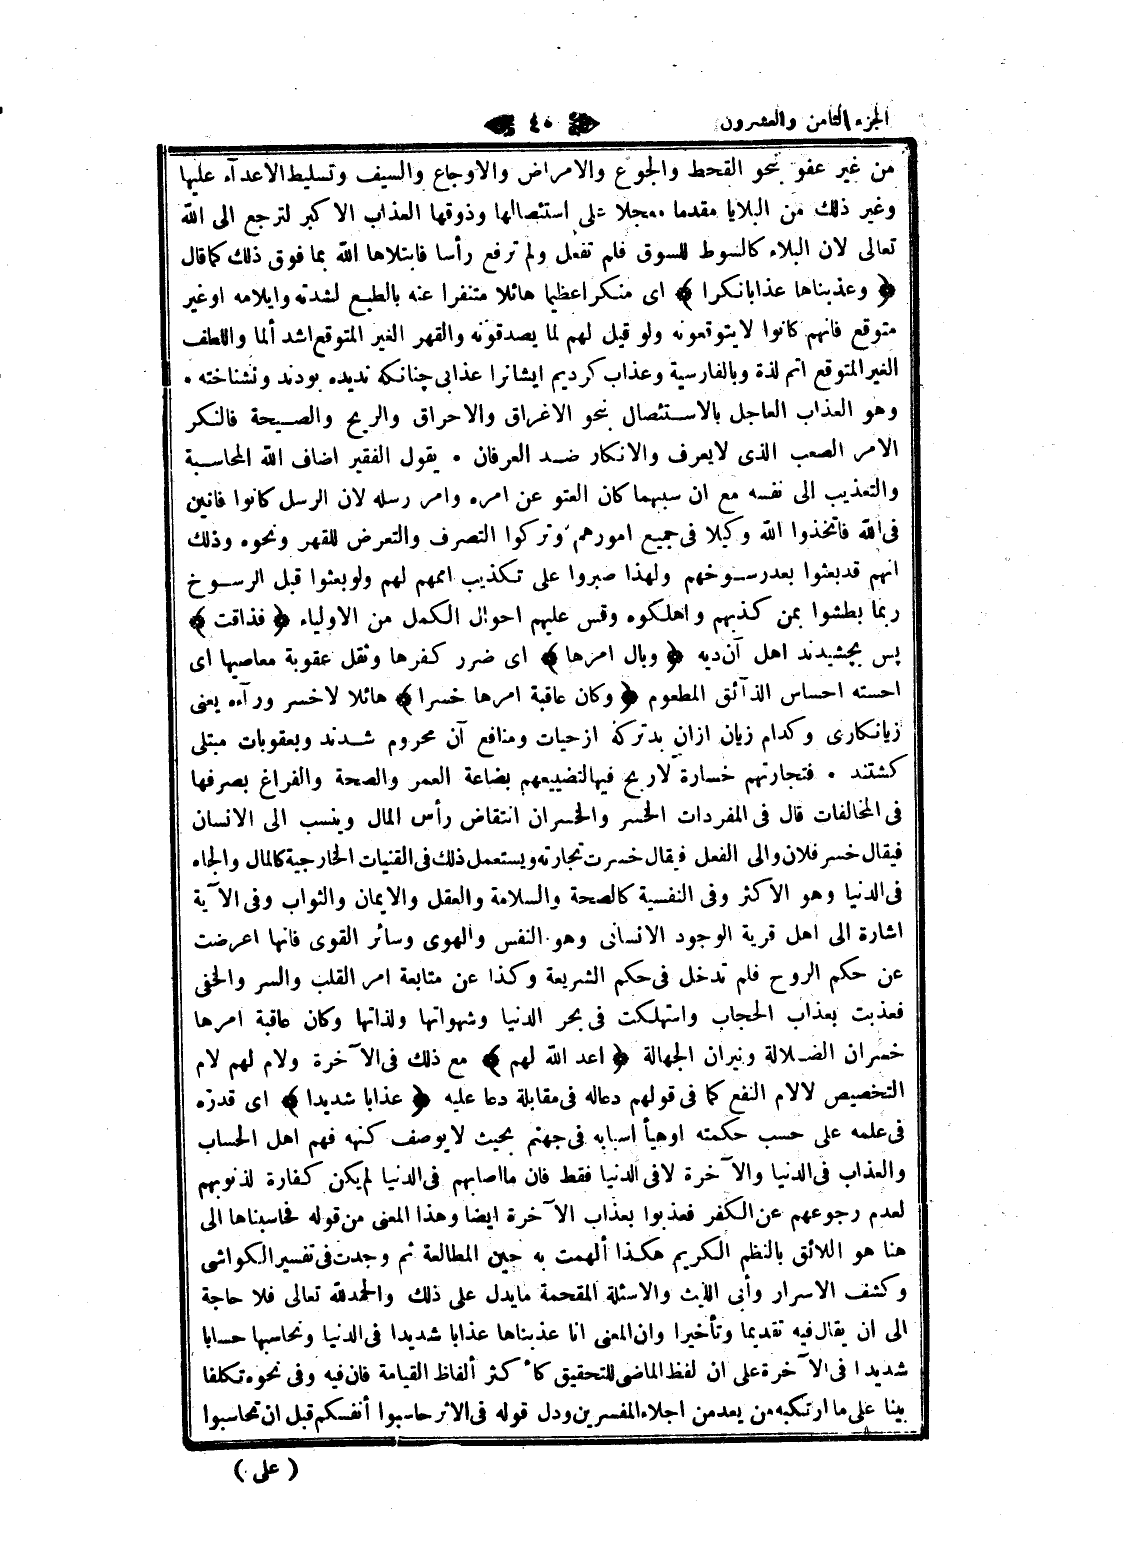 الجزء الثامن والعشرون
٤٠
من غير عفو نحو القحط والجوع والامراض والاوجاع والسيف وتسليط الاعدآء عليها
وغير ذلك من البلايا مقدما معجلا على استئصالها وذوقها العذاب الاكبر لترجع الى الله
تعالى لان البلاء كالسوط للسوق فلم تفعل ولم ترفع رأسا فابتلاها الله بما فوق ذلك كما قال
﴿ وعذبناها عذابا نكرا ﴾ اى منكرا عظيما هائلا متنفرا عنه بالطبع لشدته وايلامه او غير
متوقع فانهم كانوا لا يتوقعونه ولو قيل لهم لما يصدقونه والقهر الغير المتوقع اشد ألما واللطف
الغير المتوقع اتم لذة وبالفارسية وعذاب كرديم ايشانرا عذابى چنانكه نديده بودند ونشناخته .
وهو العذاب العاجل بالاستئصال نحو الاغراق والاحراق والريح والصيحة فالنكر
الامر الصعب الذى لا يعرف والانكار ضد العرفان . يقول الفقير اضاف الله المحاسبة
والتعذيب الى نفسه مع ان سببهما كان العتو عن امره وامر رسله لان الرسل كانوا فانين
فى الله فاتخذوا الله وكيلا فى جميع امورهم وتركوا التصرف والتعرض للقهر ونحوه وذلك
انهم قد بعثوا بعد رسوخهم ولهذا صبروا على تكذيب اممهم لهم ولو بعثوا قبل الرسوخ
ربما بطشوا بمن كذبهم واهلكوه وقس عليهم احوال الكمل من الاولياء ﴿ فذاقت ﴾
پس بچشيدند اهل آن ديه ﴿ وبال امرها ﴾ اى ضرر كفرها وثقل عقوبة معاصيها اى
احسته احساس الذآئق المطعوم ﴿ وكان عاقبة امرها خسرا ﴾ هائلا لا خسر ورآءه يعنى
زيانكارى وكدام زيان ازان بدتركه ازحيات ومنافع آن محروم شدند وبعقوبات مبتلى
كشتند . فتجارتهم خسارة لا ربح فيها لتضييعهم بضاعة العمر والصحة والفراغ بصرفها
فى المخالفات قال فى المفردات الخسر والخسران انتقاض رأس المال وينسب الى الانسان
فيقال خسر فلان والى الفعل فيقال خسرت تجارته ويستعمل ذلك فى القنيات الخارجية كالمال والجاه
فى الدنيا وهو الاكثر وفى النفسية كالصحة والسلامة والعقل والايمان والثواب وفى الآية
اشارة الى اهل قرية الوجود الانسانى وهو النفس والهوى وسائر القوى فانها اعرضت
عن حكم الروح فلم تدخل فى حكم الشريعة وكذا عن متابعة امر القلب والسر والخفى
فعذبت بعذاب الحجاب واستهلكت فى بحر الدنيا وشهواتها ولذاتها وكان عاقبة امرها
خسران الضلالة ونيران الجهالة ﴿ اعد الله لهم ﴾ مع ذلك فى الآخرة ولام لهم لام
التخصيص لا لام النفع كما فى قولهم دعاله فى مقابلة دعا عليه ﴿ عذابا شديدا ﴾ اى قدره
فى علمه على حسب حكمته اوهيأ اسبابه فى جهنم بحيث لا يوصف كنهه فهم اهل الحساب
والعذاب فى الدنيا والآخرة لا فى الدنيا فقط فان ما اصابهم فى الدنيا لم يكن كفارة لذنوبهم
لعدم رجوعهم عن الكفر فعذبوا بعذاب الآخرة ايضا وهذا المعنى من قوله فحاسبناها الى
هنا هو اللائق بالنظم الكريم هكذا ألهمت به حين المطالعة ثم وجدت فى تفسير الكواشى
وكشف الاسرار وأبى الليث والاسئلة المقحمة ما يدل على ذلك والحمد لله تعالى فلا حاجة
الى ان يقال فيه تقديما وتأخيرا وان المعنى انا عذبناها عذابا شديدا فى الدنيا ونحاسبها حسابا
شديدا فى الآخرة على ان لفظ الماضى للتحقيق كأكثر ألفاظ القيامة فان فيه وفى نحوه تكلفا
بينا على ما ارتكبه من يعد من اجلاء المفسرين ودل قوله فى الاثر حاسبوا أنفسكم قبل ان تحاسبوا
( على )